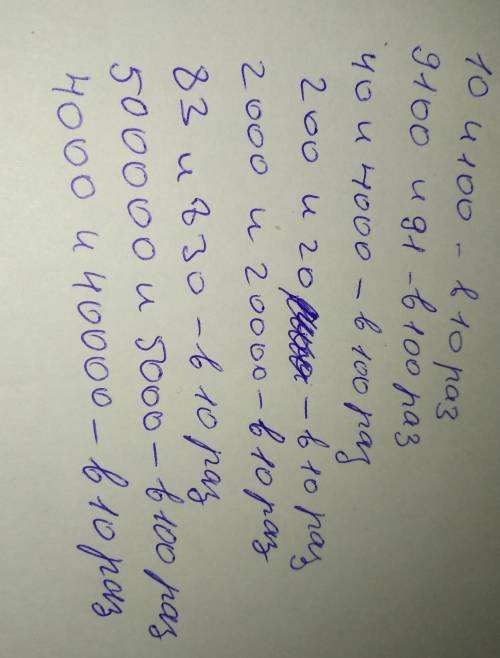 10 и 100 - в 10 раз
9100 и 91 - в 100 раз
40 и 4000 - в 100 раз
200 и 20 - в 10 раз
2000 и 20000 - в 10 раз
83 и 830 - в 10 раз
500000 и 5000 - в 100 раз
4000 и 40000 - в 10 раз